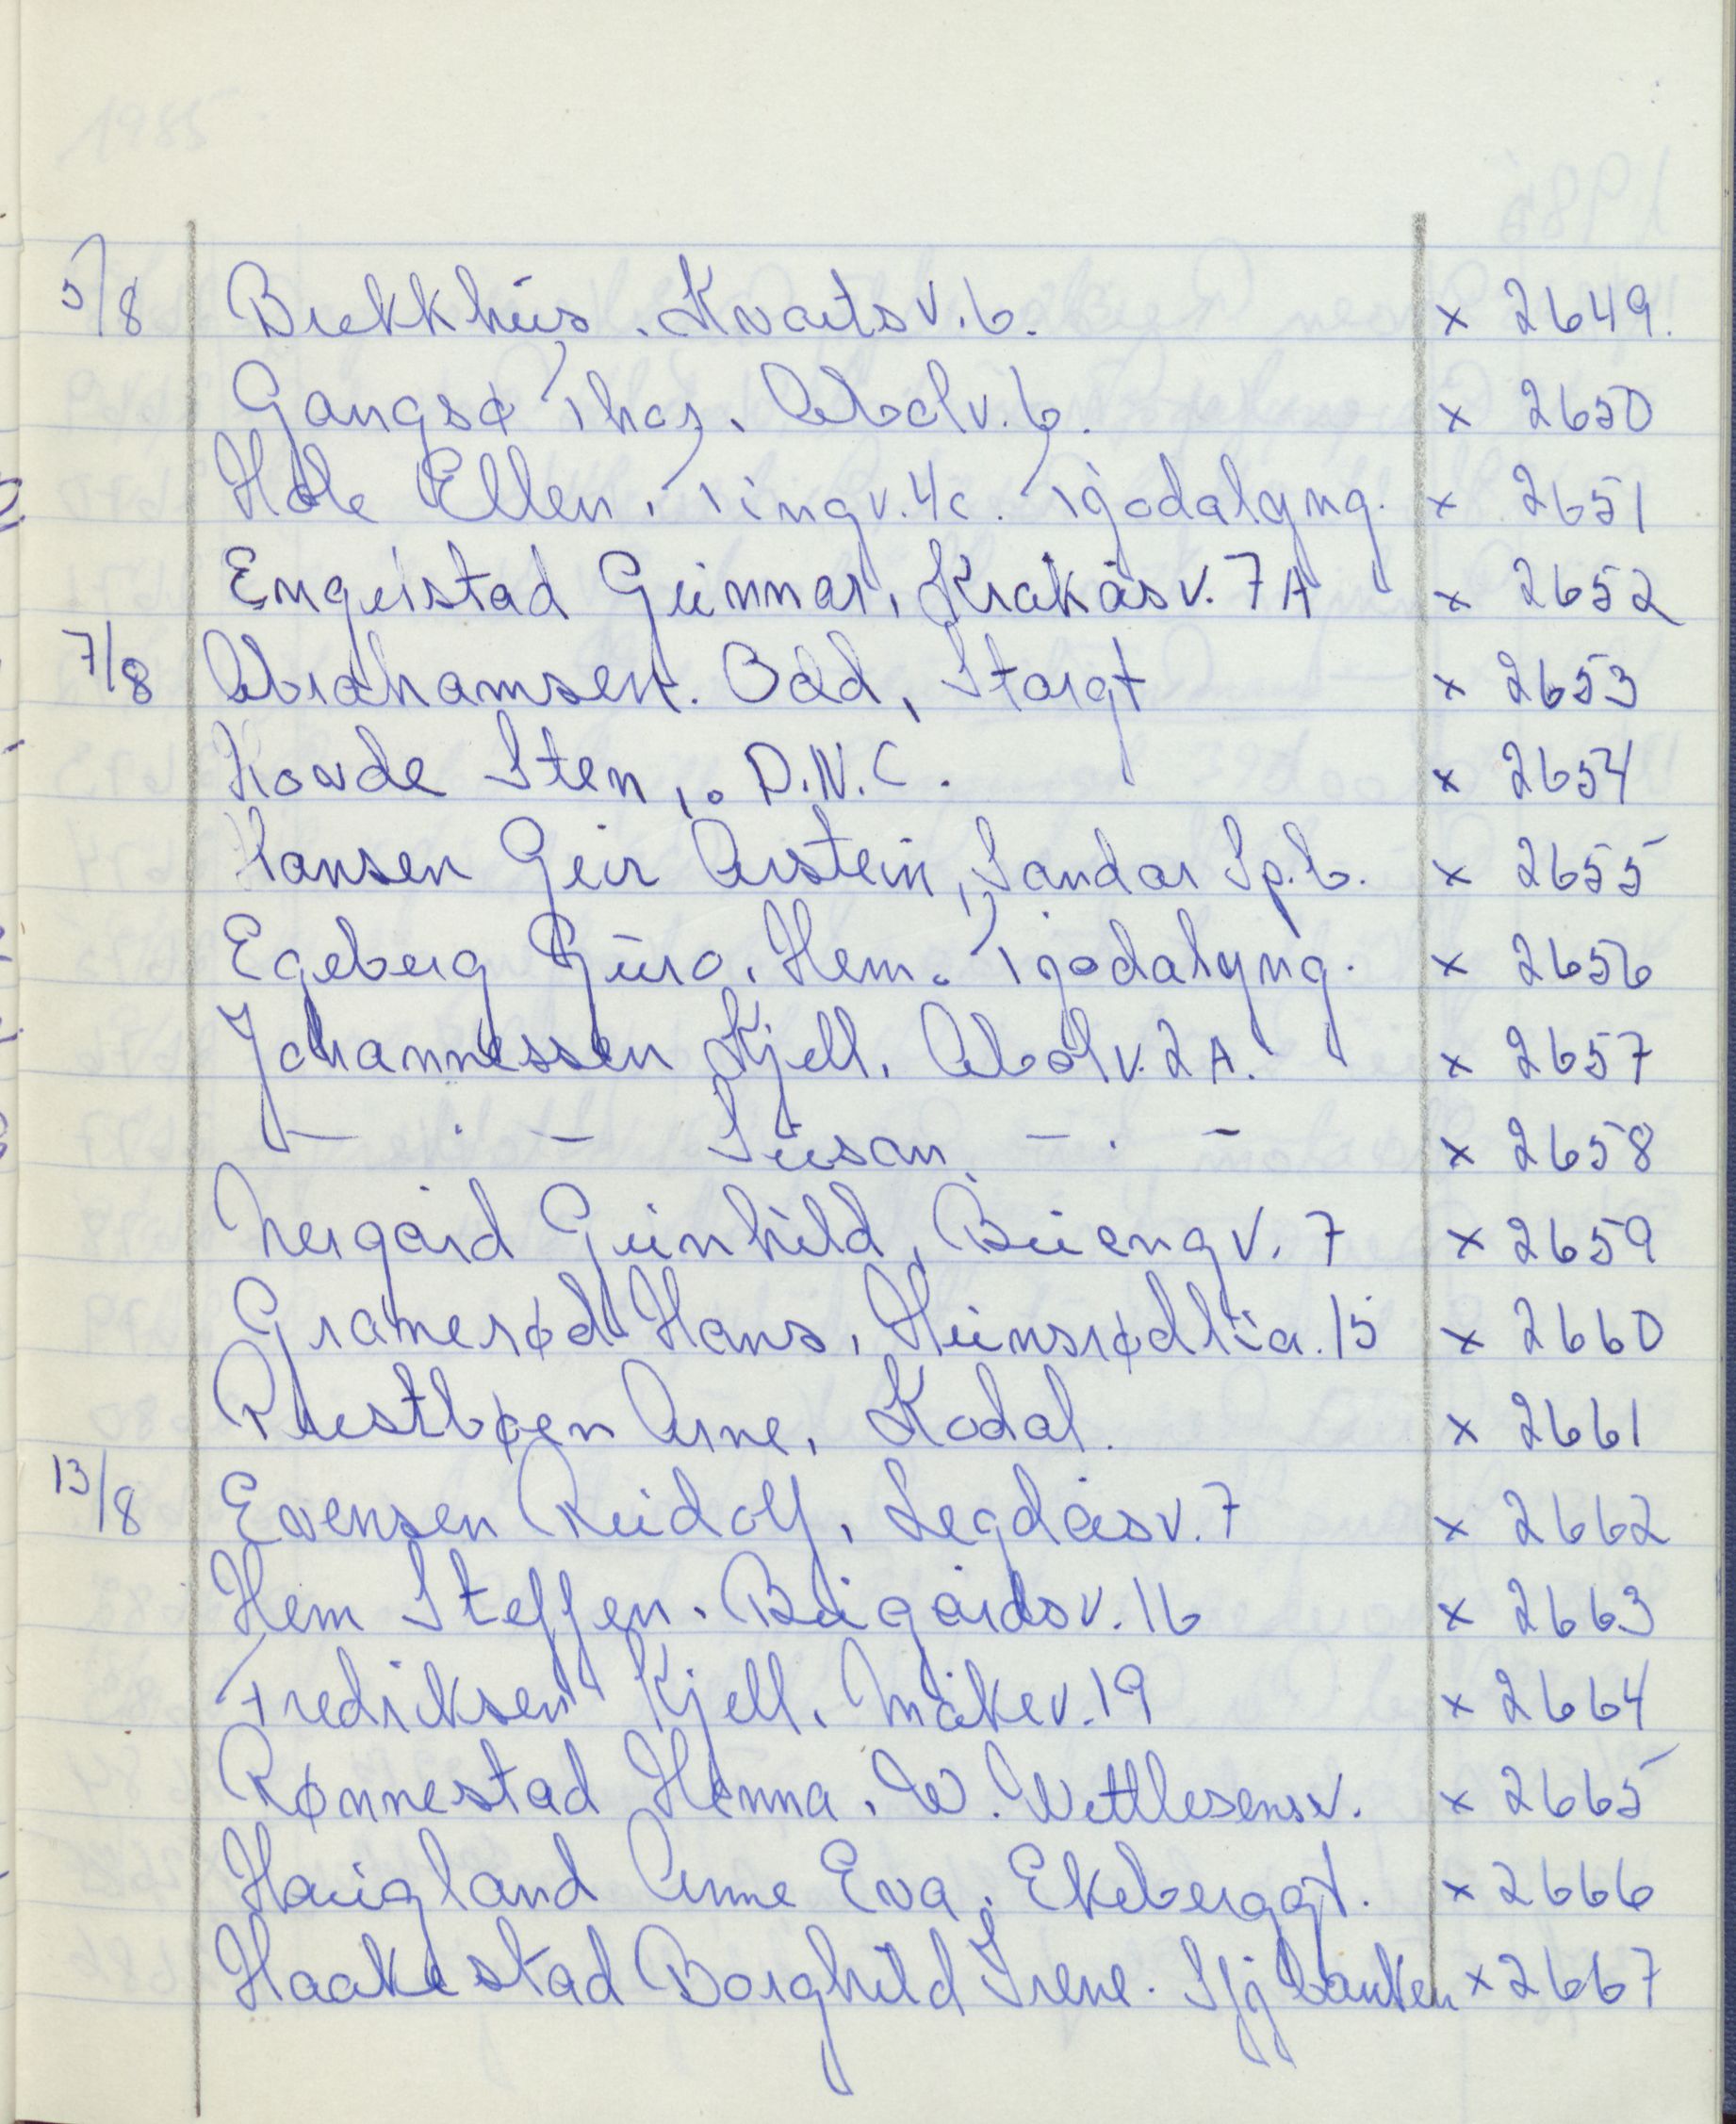 5/8 Brekkhus. Kvartsv. 6. x 2649.
Gangsø Thor. Abolv. 6. x 2650
Hole Ellen. Tingv. 4c. Tjodalyng. x 2651
Engelstad Gunnar, Kråkåsv. 7A x 2652
7/8 Abrahamsen. Odd, Storgt x 2653
Hovde Sten,. D.N.C. x 2654
Hansen Geir Arstein, Sandar Sp.b. x 2655
Egeberg Guro. Hem. Tjodalyng. x 2656
Johannessen Kjell. Abolv. 2A. x 2657
— . — Susan. — . — x 2658
Nergård Gunhild, Buengv. 7 x 2659
Gramerød Hans, Hunsrødlia. 15 x 2660
Prestbøen Arne, Kodal. x 2661
13/8 Evensen Rudolf, Legdåsv. 7 x 2662
Hem Steffen. Bugårdsv. 16 x 2663
Fredriksen Kjell. Måkev. 19 x 2664
Rønnestad Henna. W. Wettlesensv. x 2665
Haugland Anne Eva. Ekeberggt. x 2666
Haakestad Borghild Irene. Sfj banken x 2667